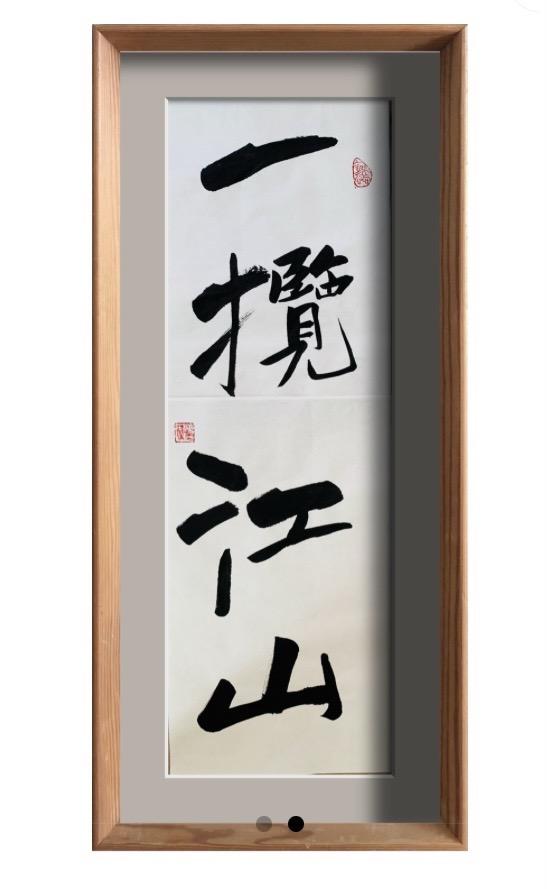 一攬江山